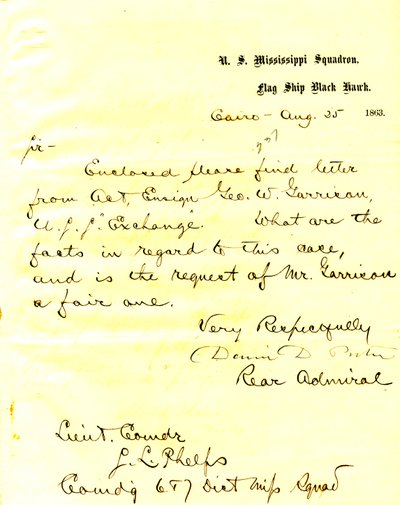 U. S. Mississippi Squadron.
Flag Ship Black Hawk.
Cairo - Aug. 25 1863.
Sir -
Enclosed please find letter
from Act, Ensign Geo. W. Garrison,
U.S.S. "Exchange". What are the
facts in regard to this case,
and is the request of Mr. Garrison
a fair one.
Very Respectfully
David D. Porter
Rear Admiral
Lieut. Comdr
S. L. Phelps
Comdg 6 & 7 Dist Miss Squad